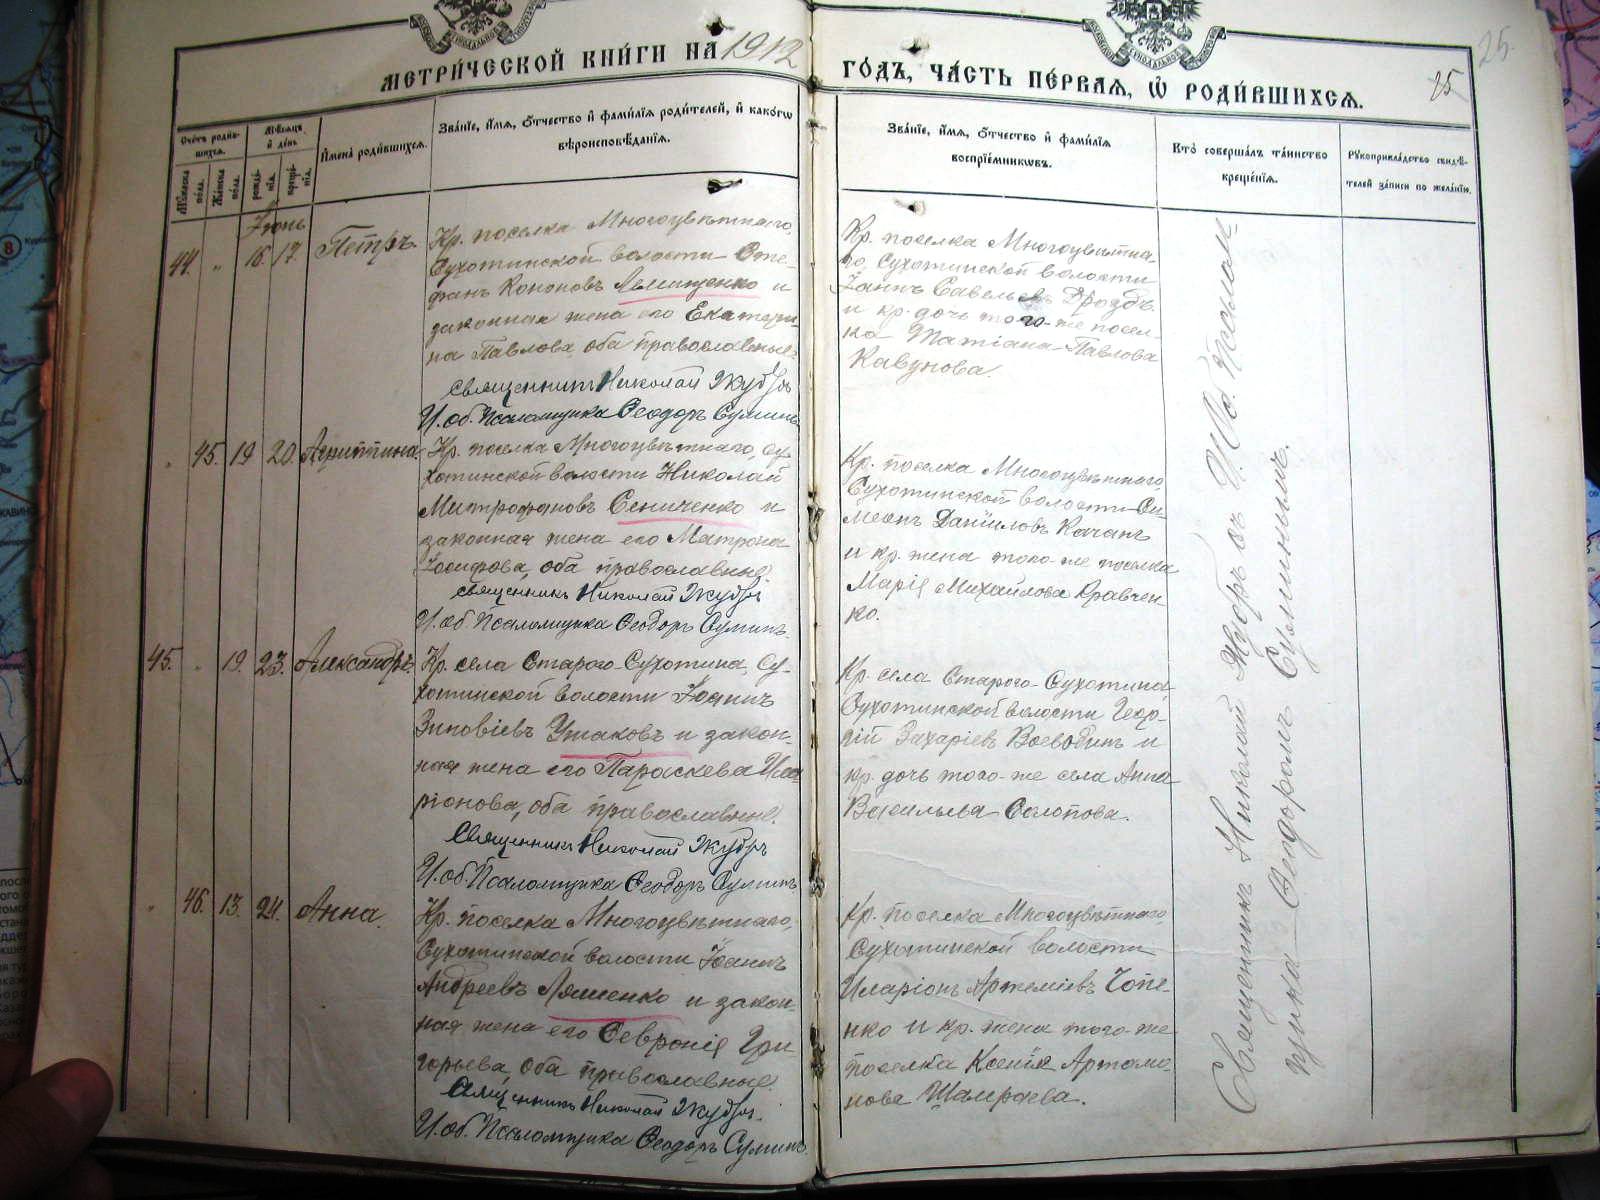 МЕТРИ́ЧЕСКОЙ КНИ́ГИ НА 1912
ГО́ДЪ, ЧА́СТЬ ПЕ́РВАЯ, Ѡ РОДИ́ВШИХСЯ.
25
25.
Сче́тъ роди́в-
шихся.
Му́жеска
по́ла.
Же́нска
по́ла.
Мѣ́сяцъ
и де́нь
рожде́-
нія.
креще́-
нія.
Имена̀ роди́вшихся.
Зва́ніе, и́мя, о́тчество и фами́лія роди́телей, и како́гѡ
вѣроисповѣ́данія.
Зва́ніе, и́мя, о́тчество и фами́лія
воспріе́мниковъ.
Кто̀ соверша́лъ та́инство
креще́нія.
Рукоприкла́дство свидѣ́-
телей за́писи по жела́нію.
Іюнь
44. „ 16. 17. Петръ.
Кр. поселка Многоцвѣтнаго,
Сухотинской волости Сте-
фанъ Кононовъ Лемищенко и
законная жена его Екатери-
на Павлова, оба православные.
Священникъ Николай Жубръ
И. об. Псаломщика Ѳеодоръ Суминъ.
Кр. поселка Многоцвѣтна-
го, Сухотинской волости
Іоаннъ Савельевъ Дроздъ
и кр. дочь того-же посел-
ка Татіана Павлова
Кавунова.
„ 45. 19 20. Агриппина.
Кр. поселка Многоцвѣтнаго, Су-
хотинской волости Николай
Митрофановъ Сениченко и
законная жена его Матрона
Іосифова, оба православные.
Священникъ Николай Жубръ
И. об. Псаломщика Ѳеодоръ Суминъ.
Кр. поселка Многоцвѣтнаго
Сухотинской волости Си-
меонъ Даніиловъ Качанъ
и кр. жена того-же поселка
Марія Михайлова Кравчен-
ко.
45. „ 19. 23. Александръ.
Кр. села Стараго-Сухотина, Су-
хотинской волости Іоаннъ
Зиновіевъ Ушаковъ и закон-
ная жена его Параскева Ила-
ріонова, оба православные.
Священникъ Николай Жубръ
И. об. Псаломщика Ѳеодоръ Суминъ
Кр. села Стараго-Сухотина
Сухотинской волости Геор-
гій Захаріевъ Воеводинъ и
кр. дочь того-же села Анна
Васильева Солопова.
„ 46. 13. 24. Анна.
Кр. поселка Многоцвѣтнаго,
Сухотинской волости Іоаннъ
Андреевъ Ляшенко и закон-
ная жена его Февронія Гри-
горьева, оба православные.
Священникъ Николай Жубръ.
И. об. Псаломщика Ѳеодоръ Суминъ.
Кр. поселка Многоцвѣтнаго
Сухотинской волости
Иларіонъ Артеміевъ Чопе-
нко и кр. жена того-же
поселка Ксенія Артамо-
нова Шамраева.
Священникъ Николай Жубръ съ И. Об. Псалом-
щика Ѳеодоромъ Суминымъ.